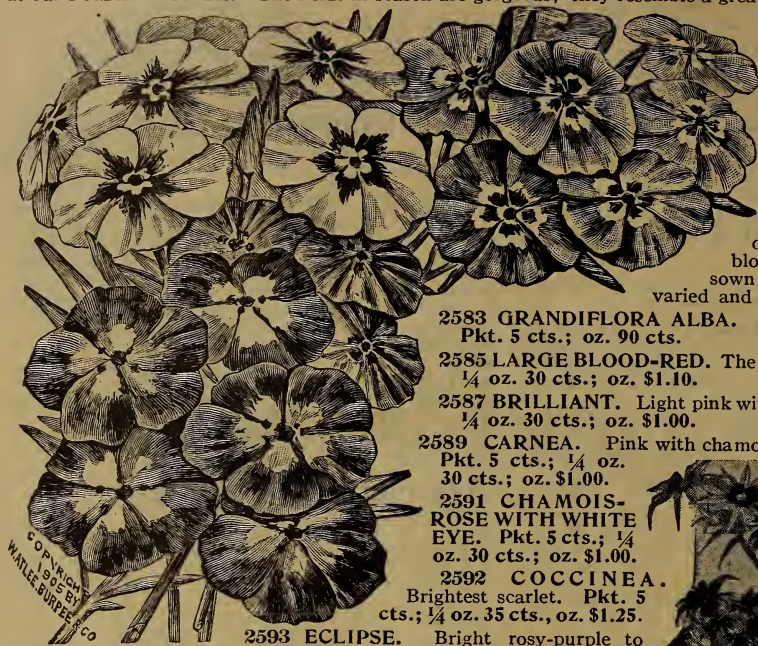 at our Fordhook
season are gorgeous; they resemble a grea
blo
sown
varied and
2583 GRANDIFLORA ALBA.
Pkt. 5 cts.; oz. 90 cts.
2585 LARGE BLOOD-RED. The
¼ oz. 30 cts.; oz. $1.10.
2587 BRILLIANT. Light pink wi
¼ oz. 30 cts.; oz. $1.00.
2589 CARNEA. Pink with chamo
Pkt. 5 cts.; ¼ oz.
30 cts.; oz. $1.00.
2591 CHAMOIS-
ROSE WITH WHITE
EYE. Pkt. 5 cts.; ¼
oz. 30 cts.; oz. $1.00.
2592 COCCINEA.
Brightest scarlet. Pkt. 5
cts.; ¼ oz. 35 cts., oz. $1.25.
2593 ECLIPSE. Bright rosy-purple to
COPYRIGHT
1905 BY
W.ATLEE.BURPEE & CO